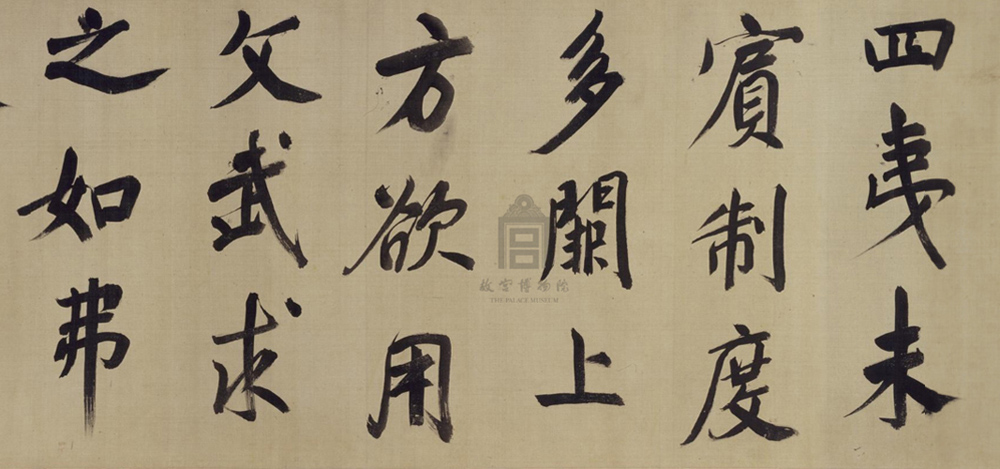 四夷未
賓制度
多闕上
方欲用
文武求
之如弗
故宫博物院
THE PALACE MUSEUM